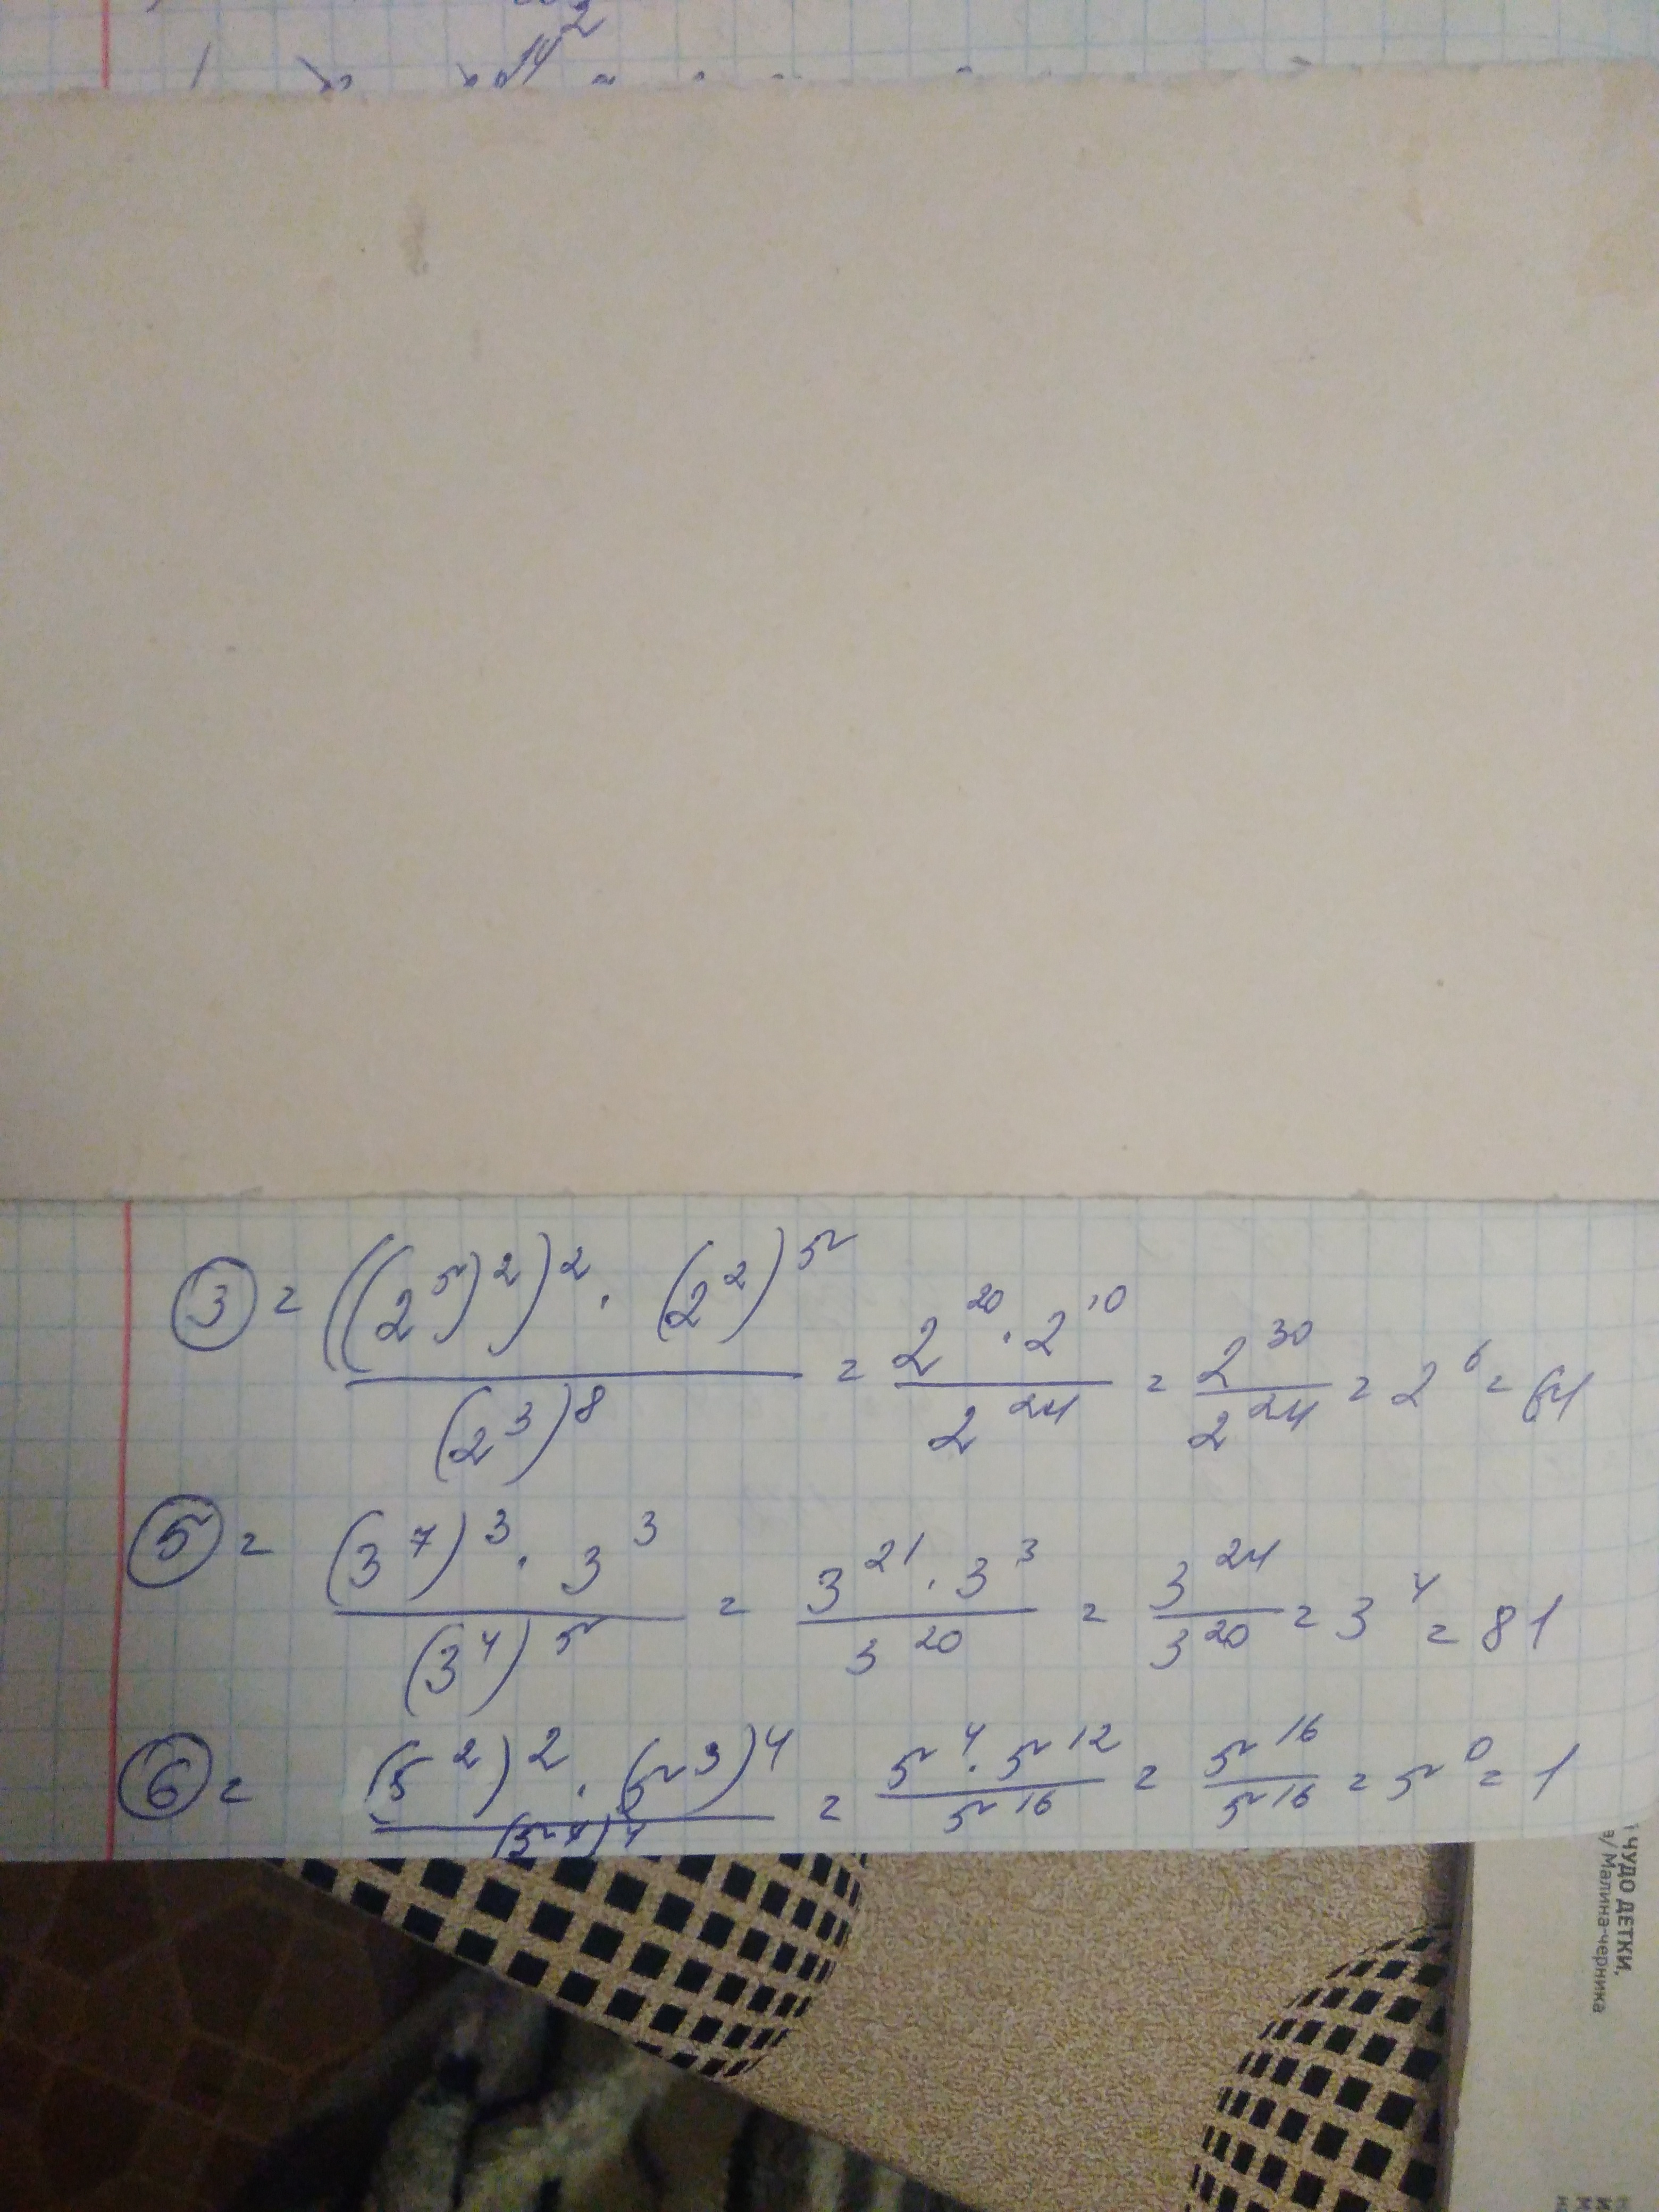 ③ = ((2⁵)²)² · (2²)⁵ / (2³)⁸ = 2²⁰ · 2¹⁰ / 2²⁴ = 2³⁰ / 2²⁴ = 2⁶ = 64
⑤ = (3⁷)³ · 3³ / (3⁴)⁵ = 3²¹ · 3³ / 3²⁰ = 3²⁴ / 3²⁰ = 3⁴ = 81
⑥ = (5²)² · (5³)⁴ / (5⁴)⁴ = 5⁴ · 5¹² / 5¹⁶ = 5¹⁶ / 5¹⁶ = 5⁰ = 1
ЧУДО ДЕТКИ,
Малина-черника